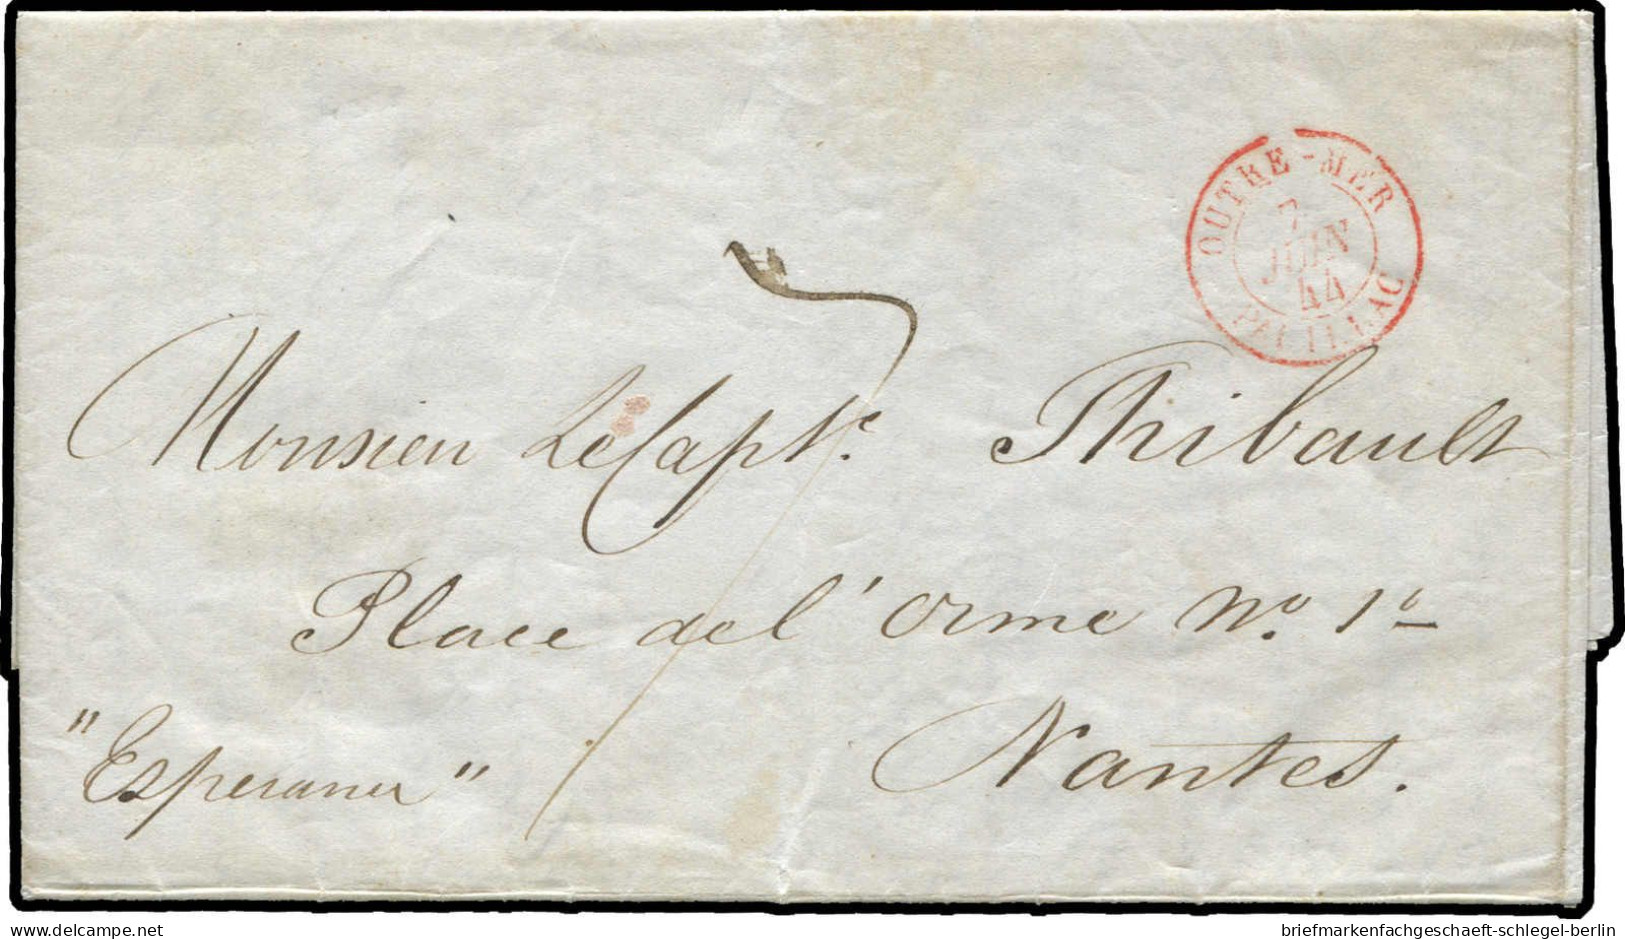 OUTRE-MER
7
JUIN
44
PAUILLAC
7
Monsieur Le Captne. Thibault
Place de l'Orme No. 1o
"Esperance" Nantes.
delcampe.net
briefmarkenfachgeschaeft-schlegel-berlin